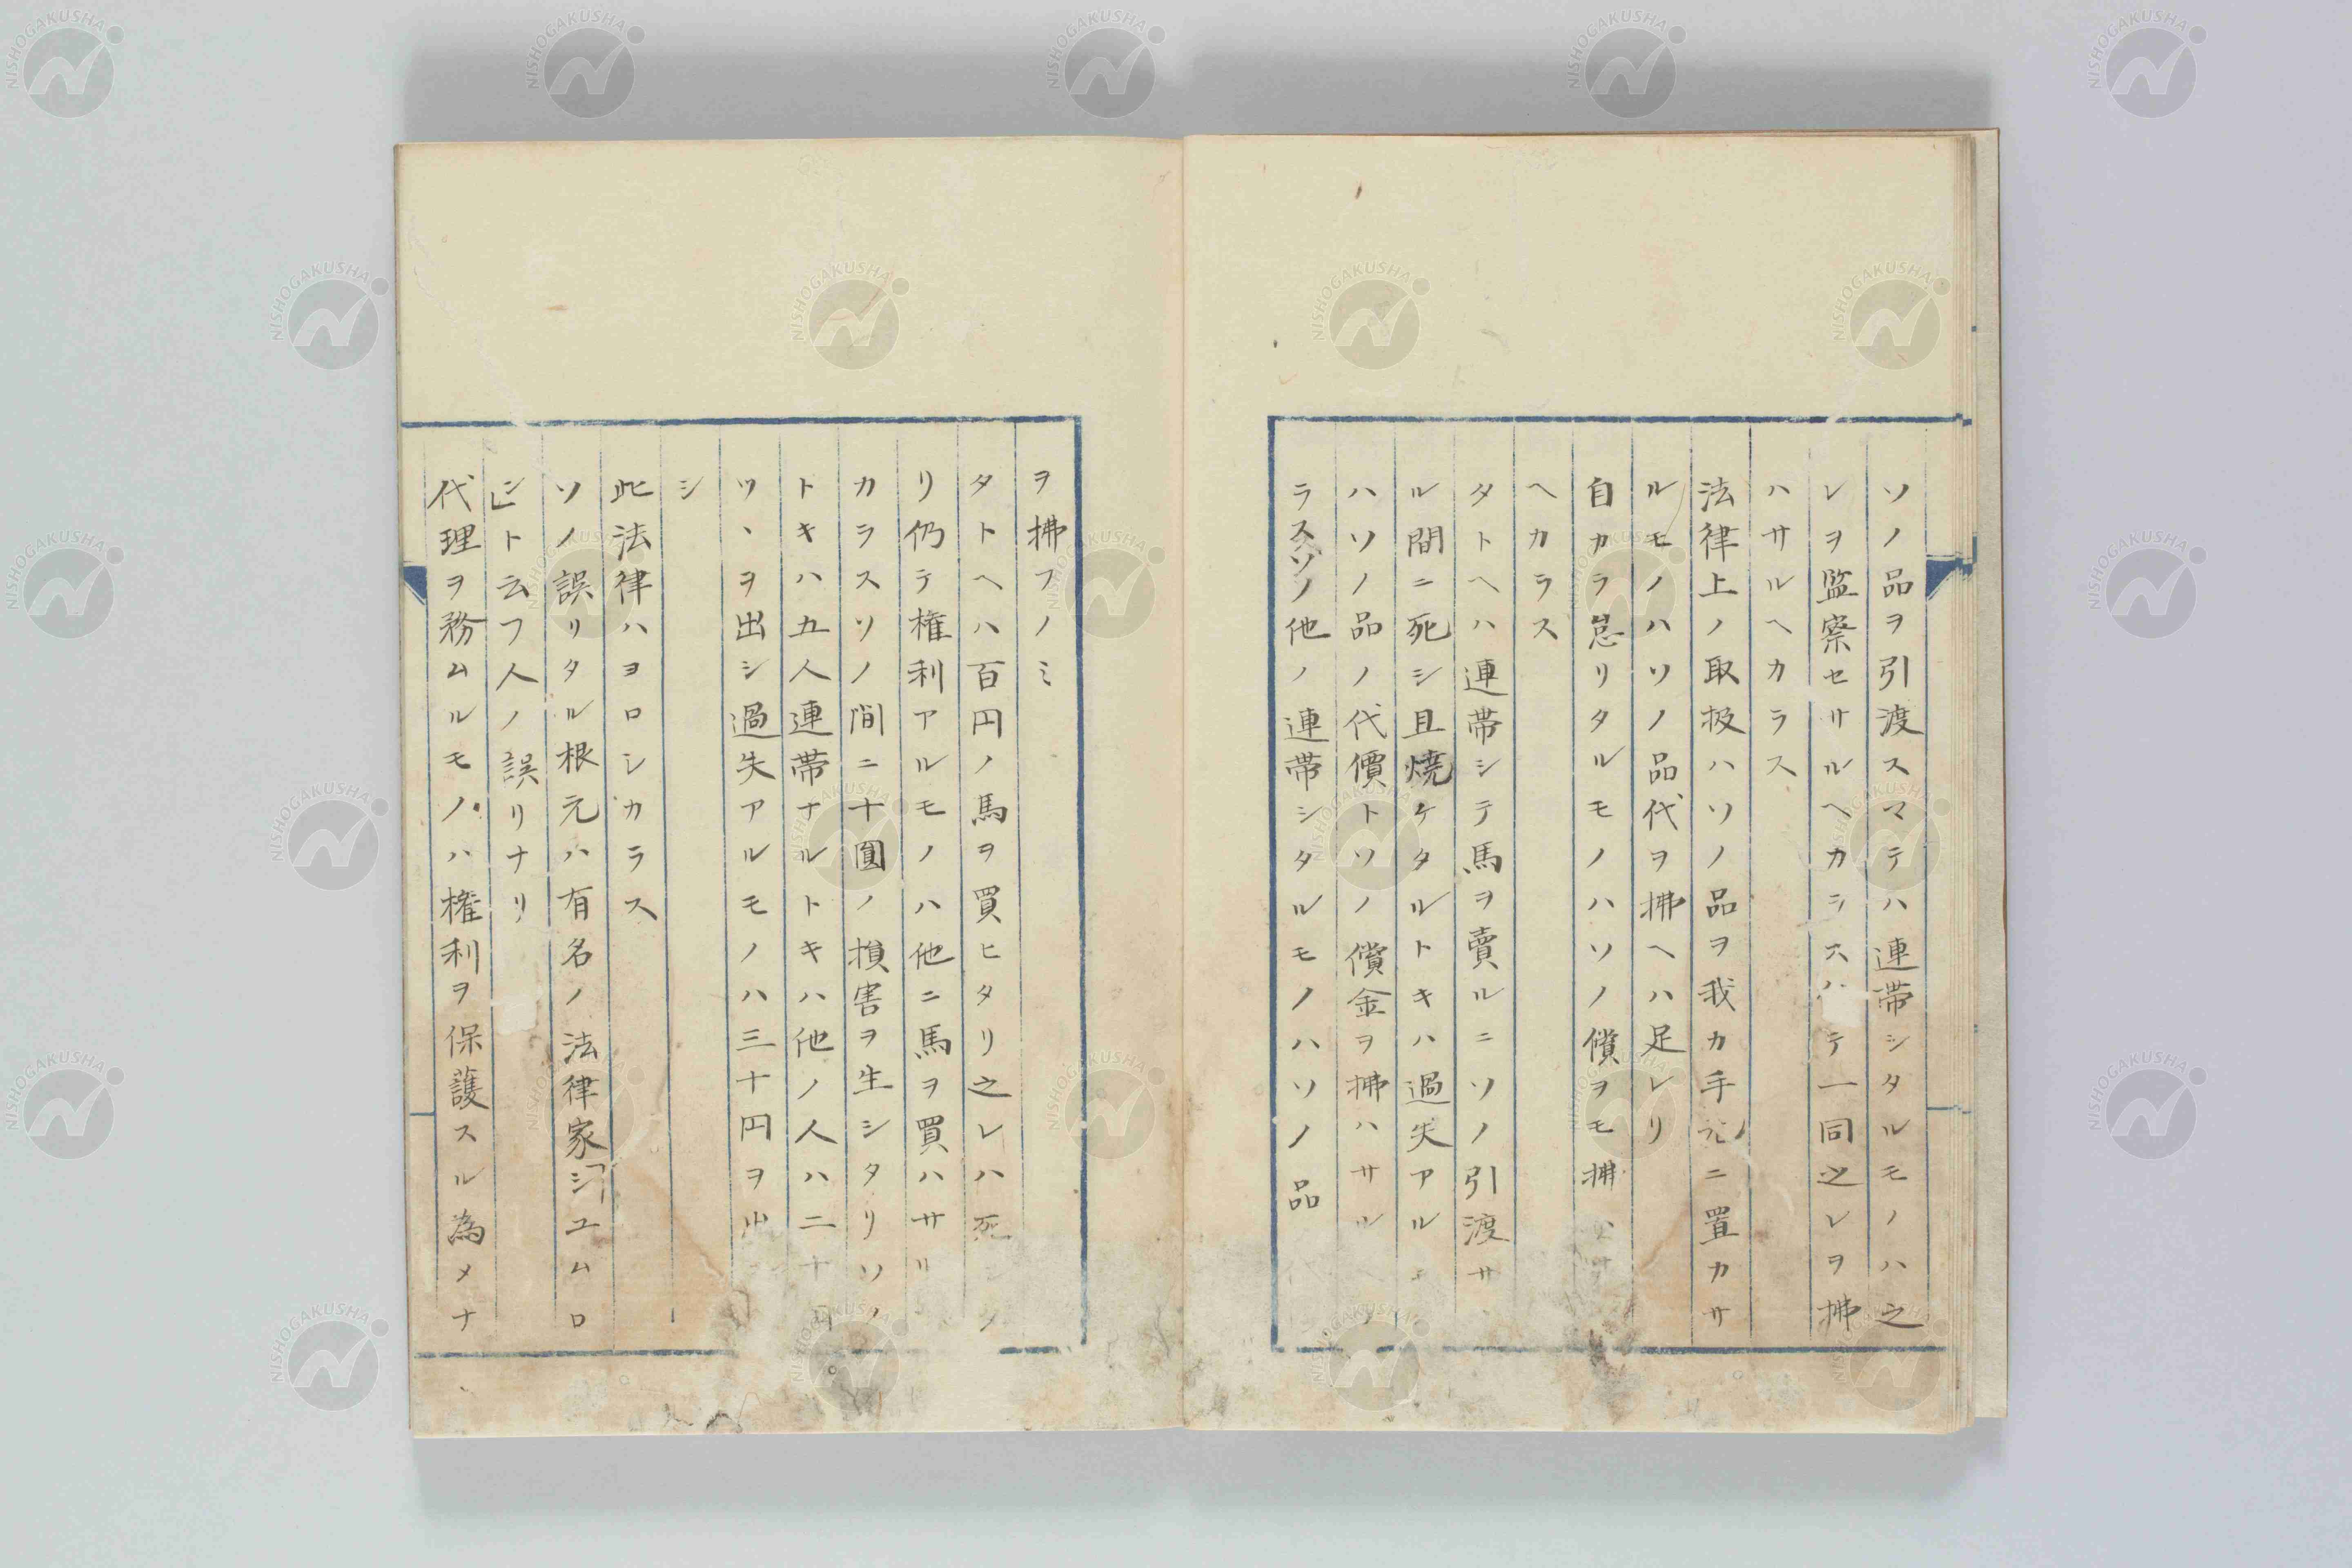 ソノ品ヲ引渡スマテハ連帯シタルモノハ之
レヲ監察セサルヘカラスハテ一同之レヲ拂
ハサルヘカラス
法律上ノ取扱ハソノ品ヲ我カ手元ニ置カサ
ルモノハソノ品代ヲ拂ヘハ足レリ
自カラ怠リタルモノハソノ償ヲモ拂ハサ
ヘカラス
タトヘハ連帯シテ馬ヲ賣ルニソノ引渡サ
ル間ニ死シ且焼ケタルトキハ過失アル
ハソノ品ノ代價トソノ償金ヲ拂ハサル
ラスソノ他ノ連帯シタルモノハソノ品
ヲ拂フノミ
タトヘハ百円ノ馬ヲ買ヒタリ之レハ死
リ仍テ権利アルモノハ他ニ馬ヲ買ハサル
カラスソノ間ニ十圓ノ損害ヲ生シタリソノ
トキハ五人連帯ナルトキハ他ノ人ハ二十円
ツヽヲ出シ過失アルモノハ三十円ヲ出
シ
此法律ハヨロシカラス
ソノ誤リタル根元ハ有名ノ法律家「ジユムロ
ン」ト云フ人ノ誤リナリ
代理ヲ務ムルモノハ権利ヲ保護スル為メナ
NISHOGAKUSHA